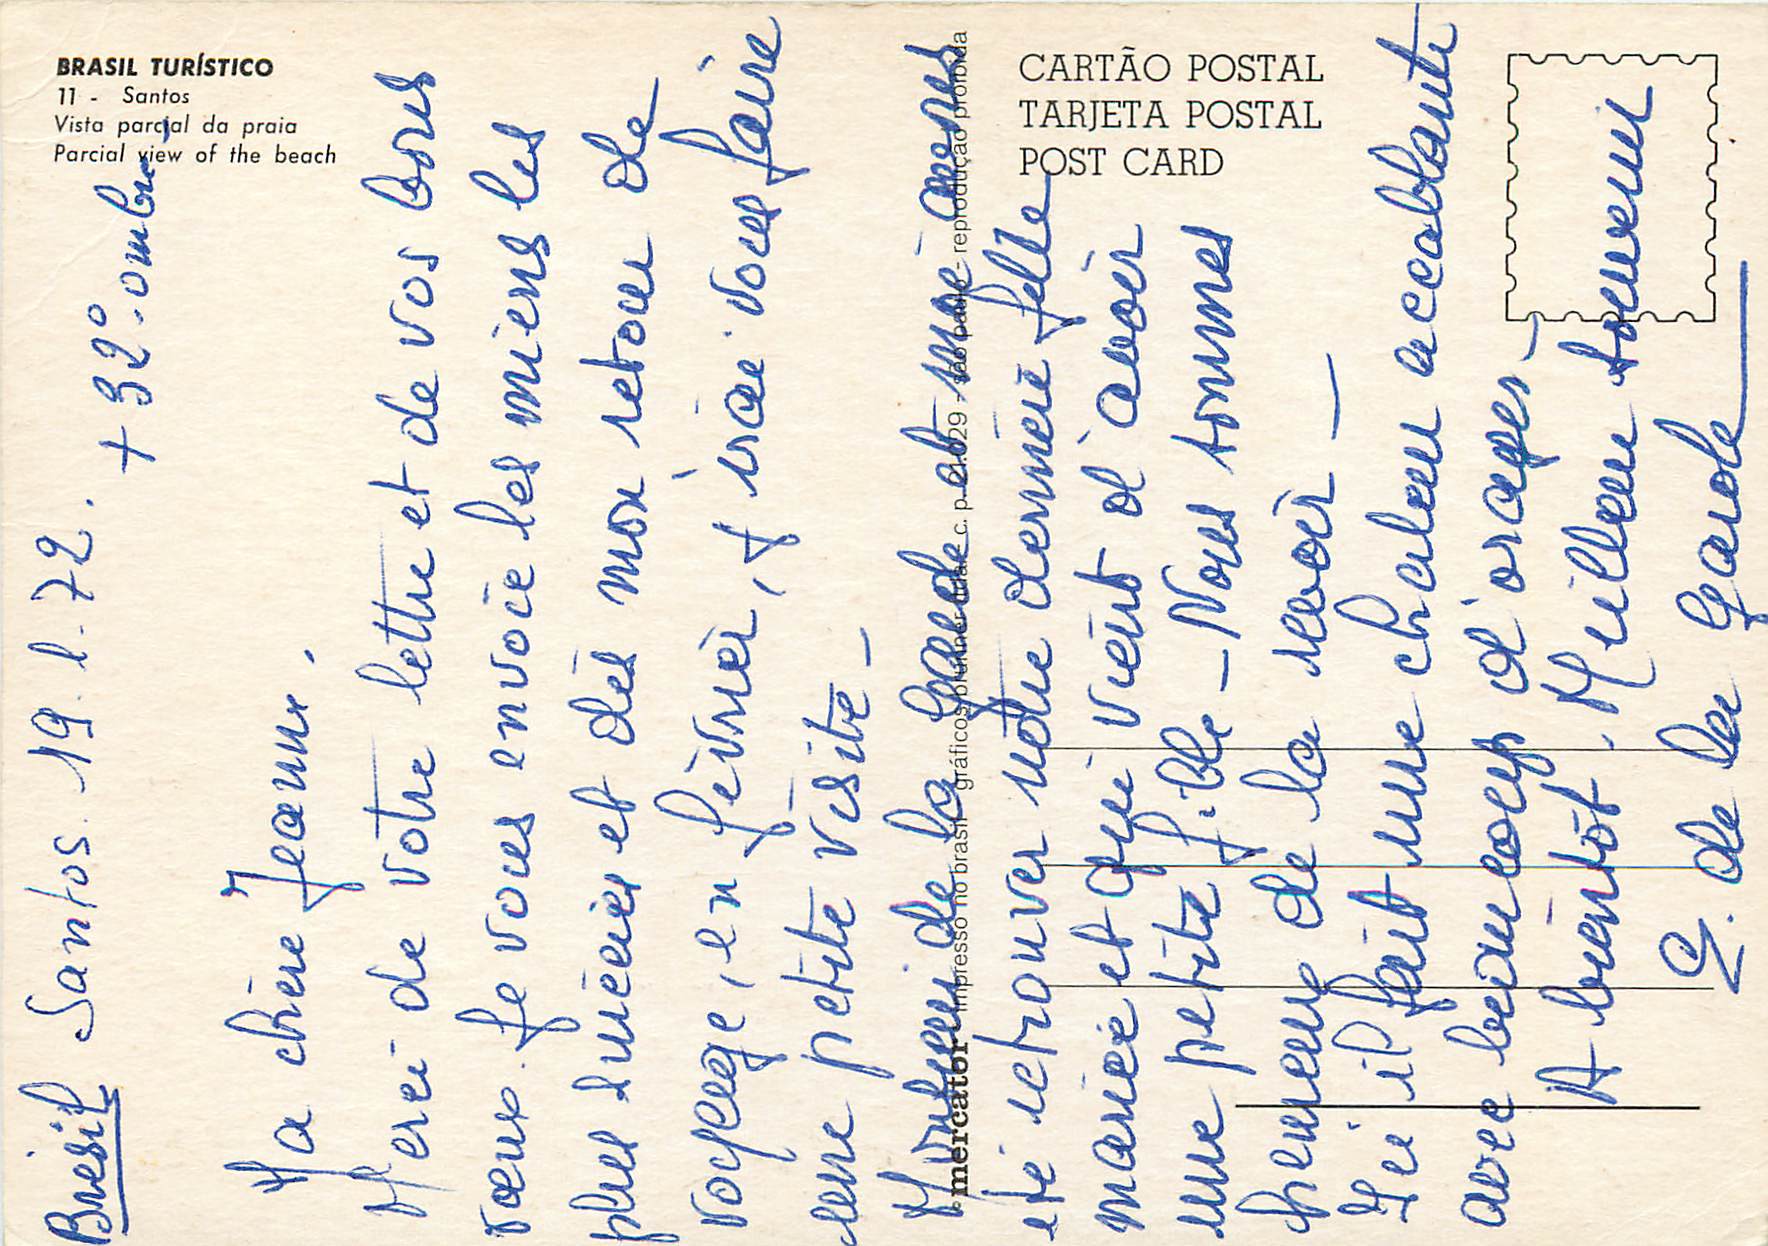 BRASIL TURÍSTICO
11 - Santos
Vista parcial da praia
Parcial view of the beach
CARTÃO POSTAL
TARJETA POSTAL
POST CARD
mercator impresso no brasil - gráficos brunner ltda. c. p. são paulo - reprodução proibida
Brésil Santos. 19. 1. 72.
+ 32°. ombre
Ma chère Jeanne,
Merci de votre lettre et de vos bons
vœux. Je vous envoie les miens les
plus sincères et dès mon retour de
voyage, en février, j'irai vous faire
une petite visite _
Monsieur de la et moi avons
été retrouver notre dernière fille
mariée et qui vient d'avoir
une petite fille _ Nous sommes
heureux de la revoir _
Ici il fait une chaleur accablante
avec beaucoup d'orages _
A bientôt. Meilleur souvenir
G. de la